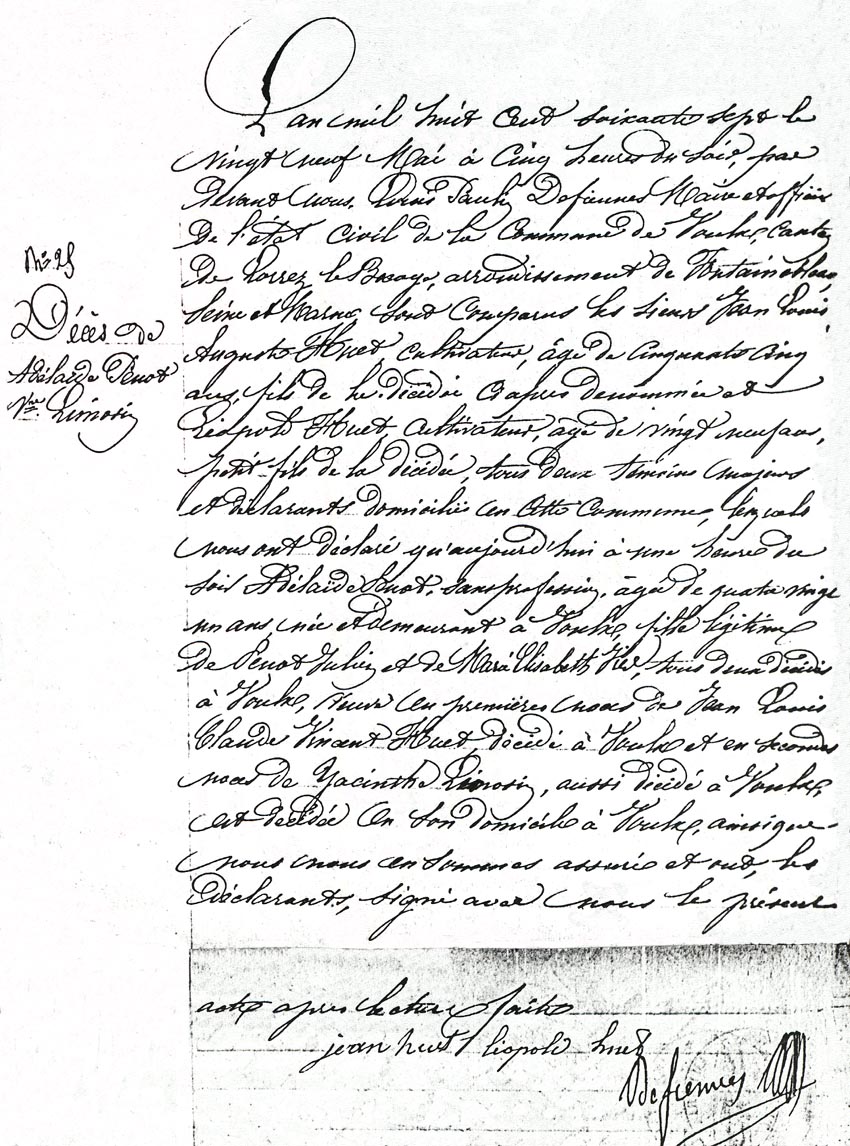 Nº 25
Décès de
Adélaïde Penot
Vve Limosin
L'an mil huit cent soixante sept le
vingt neuf Mai à cinq heures du soir, par
devant nous, Louis Paulin Defiennes Maire et officier
de l'état civil de la Commune de Voulx, canton
de Lorrez le Bocage, arrondissement de Fontainebleau,
Seine et Marne, sont comparus les sieurs Jean Louis
Auguste Huet, cultivateur, âgé de cinquante cinq
ans, fils de la décédée ci après dénommée et
Léopold Huet, cultivateur, âgé de vingt neuf ans,
petit-fils de la décédée, tous deux témoins majeurs
et déclarants domiciliés en cette Commune, lesquels
nous ont déclaré qu'aujourd'hui à une heure du
soir Adélaïde Penot, sans profession, âgée de quatre vingt
un ans, née et demeurant à Voulx, fille légitime
de Penot Julien et de Marie Elisabeth, tous deux décédés
à Voulx, veuve en premières noces de Jean Louis
Claude Vincent Huet, décédé à Voulx et en secondes
noces de Yacinthe Limosin, aussi décédé à Voulx,
est décédée en son domicile à Voulx, ainsi que
nous nous en sommes assuré et ont, les
déclarants, signé avec nous le présent
acte après lecture faite
jean huet léopold huet
Defiennes